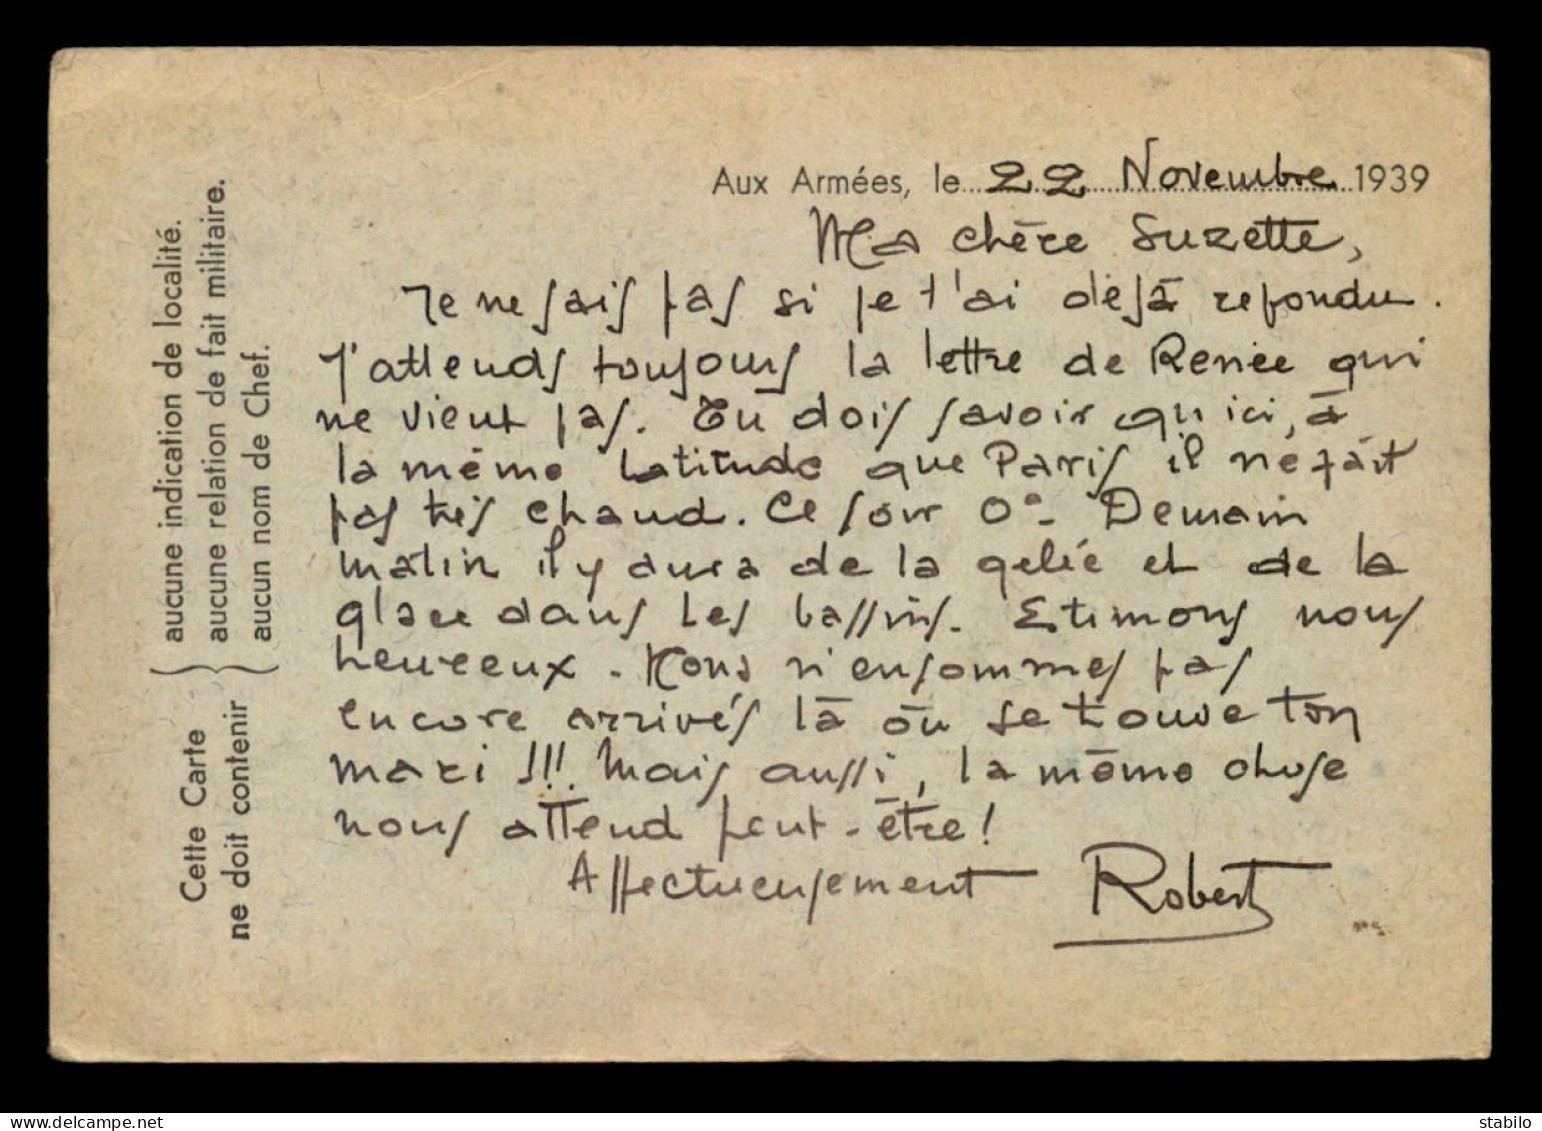 Aux Armées, le 22 Novembre 1939
Ma chère Suzette,
Je ne sais pas si je t'ai déjà repondu.
J'attends toujours la lettre de Renée qui
ne vient pas. Tu dois savoir qu'ici, à
la même latitude que Paris il ne fait
pas très chaud. Ce soir 0°. Demain
matin il y aura de la gelée et de la
glace dans les bassins. Estimons nous
heureux. Nous n'en sommes pas
encore arrivés là où se trouve ton
mari !!! Mais aussi, la même chose
nous attend peut-être !
Affectueusement Robert
Cette Carte
ne doit contenir
aucune indication de localité.
aucune relation de fait militaire.
aucun nom de Chef.
delcampe.net
stabilo